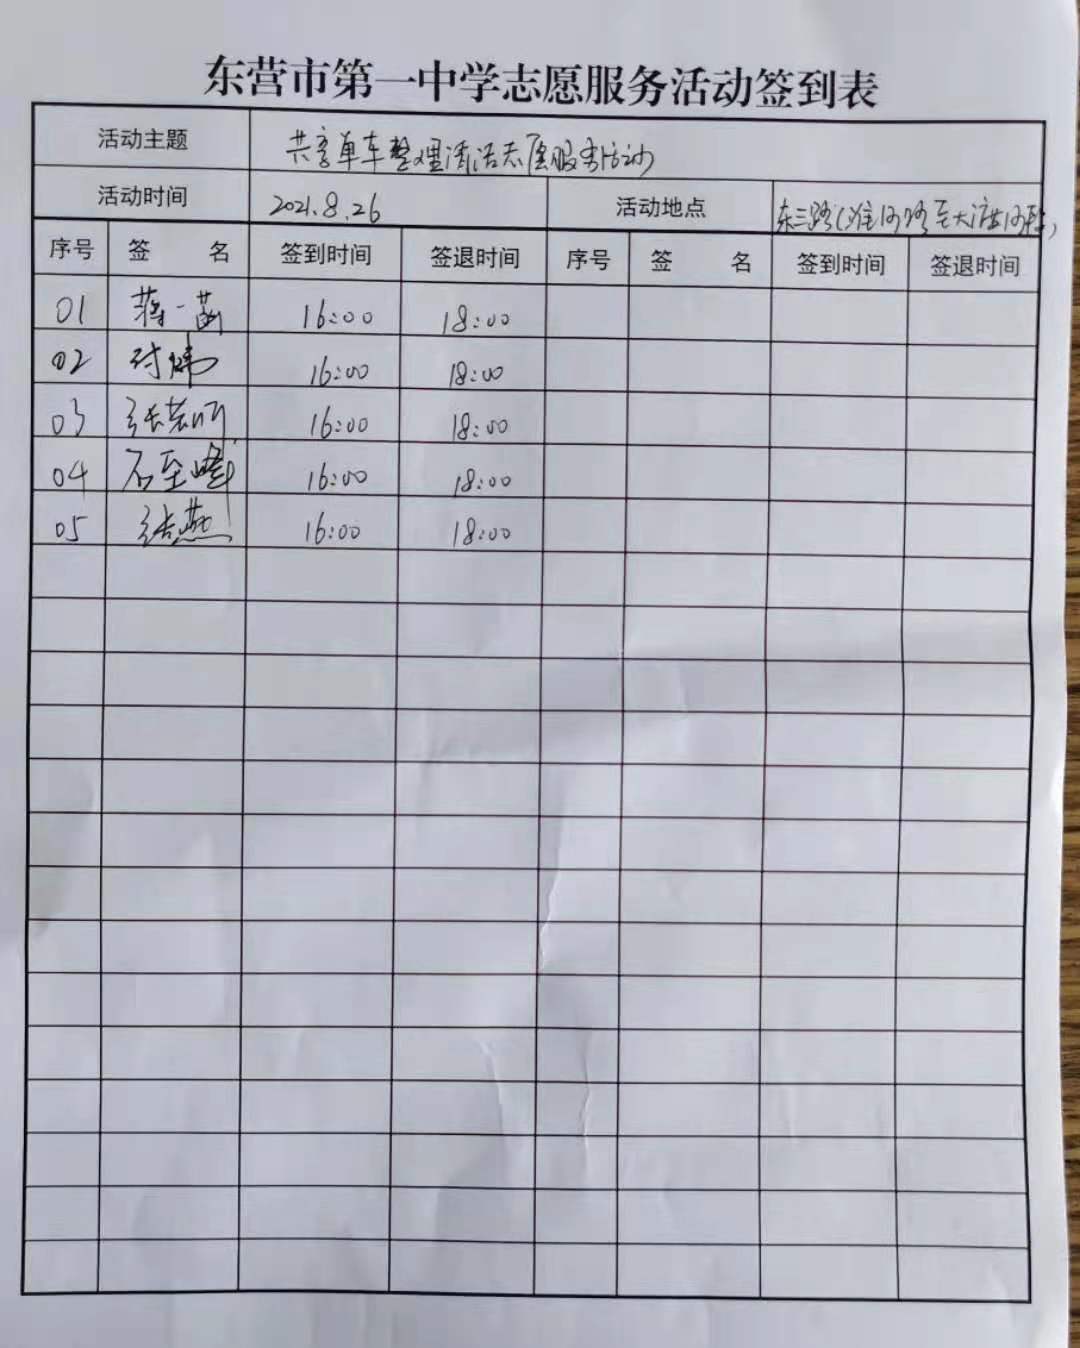 东营市第一中学志愿服务活动签到表
活动主题 共享单车整理清洁志愿服务活动
活动时间 2021.8.26 活动地点 东三路(淮河路至大渡河路)
序号 签 名 签到时间 签退时间 序号 签 名 签到时间 签退时间
01 蒋一菡 16:00 18:00
02 16:00 18:00
03 16:00 18:00
04 石至峰 16:00 18:00
05 张燕 16:00 18:00